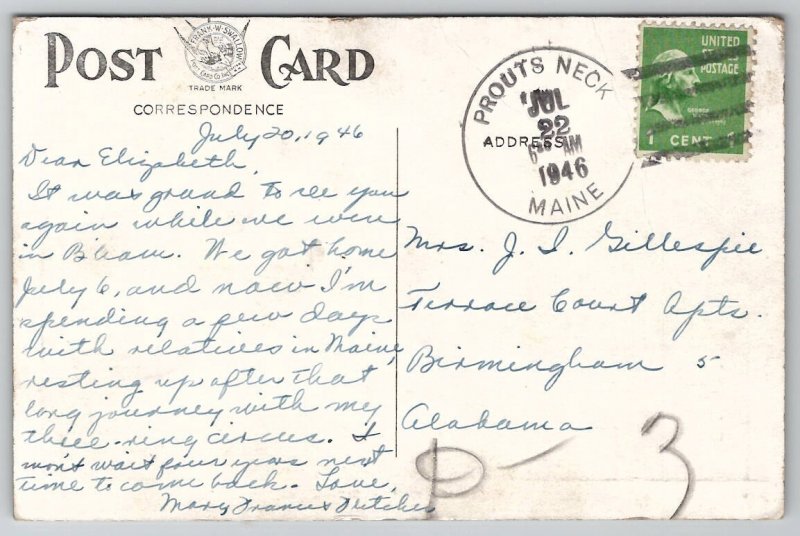 POST CARD
FRANK·W·SWALLOW
POST CARD CO. INC.
TRADE MARK
CORRESPONDENCE
July 20, 1946
Dear Elizabeth,
It was grand to see you
again while we were
in B'ham. We got home
July 6, and now I'm
spending a few days
with relatives in Maine,
resting up after that
long journey with my
three-ring circus. I
won't wait four years next
time to come back. Love,
Mary Frances Fletcher
ADDRESS
PROUTS NECK
JUL
22
AM
1946
MAINE
UNITED
STATES
POSTAGE
GEORGE
1 CENT
Mrs. J. I. Gillespie
Terrace Court Apts.
Birmingham 5
Alabama
D-3